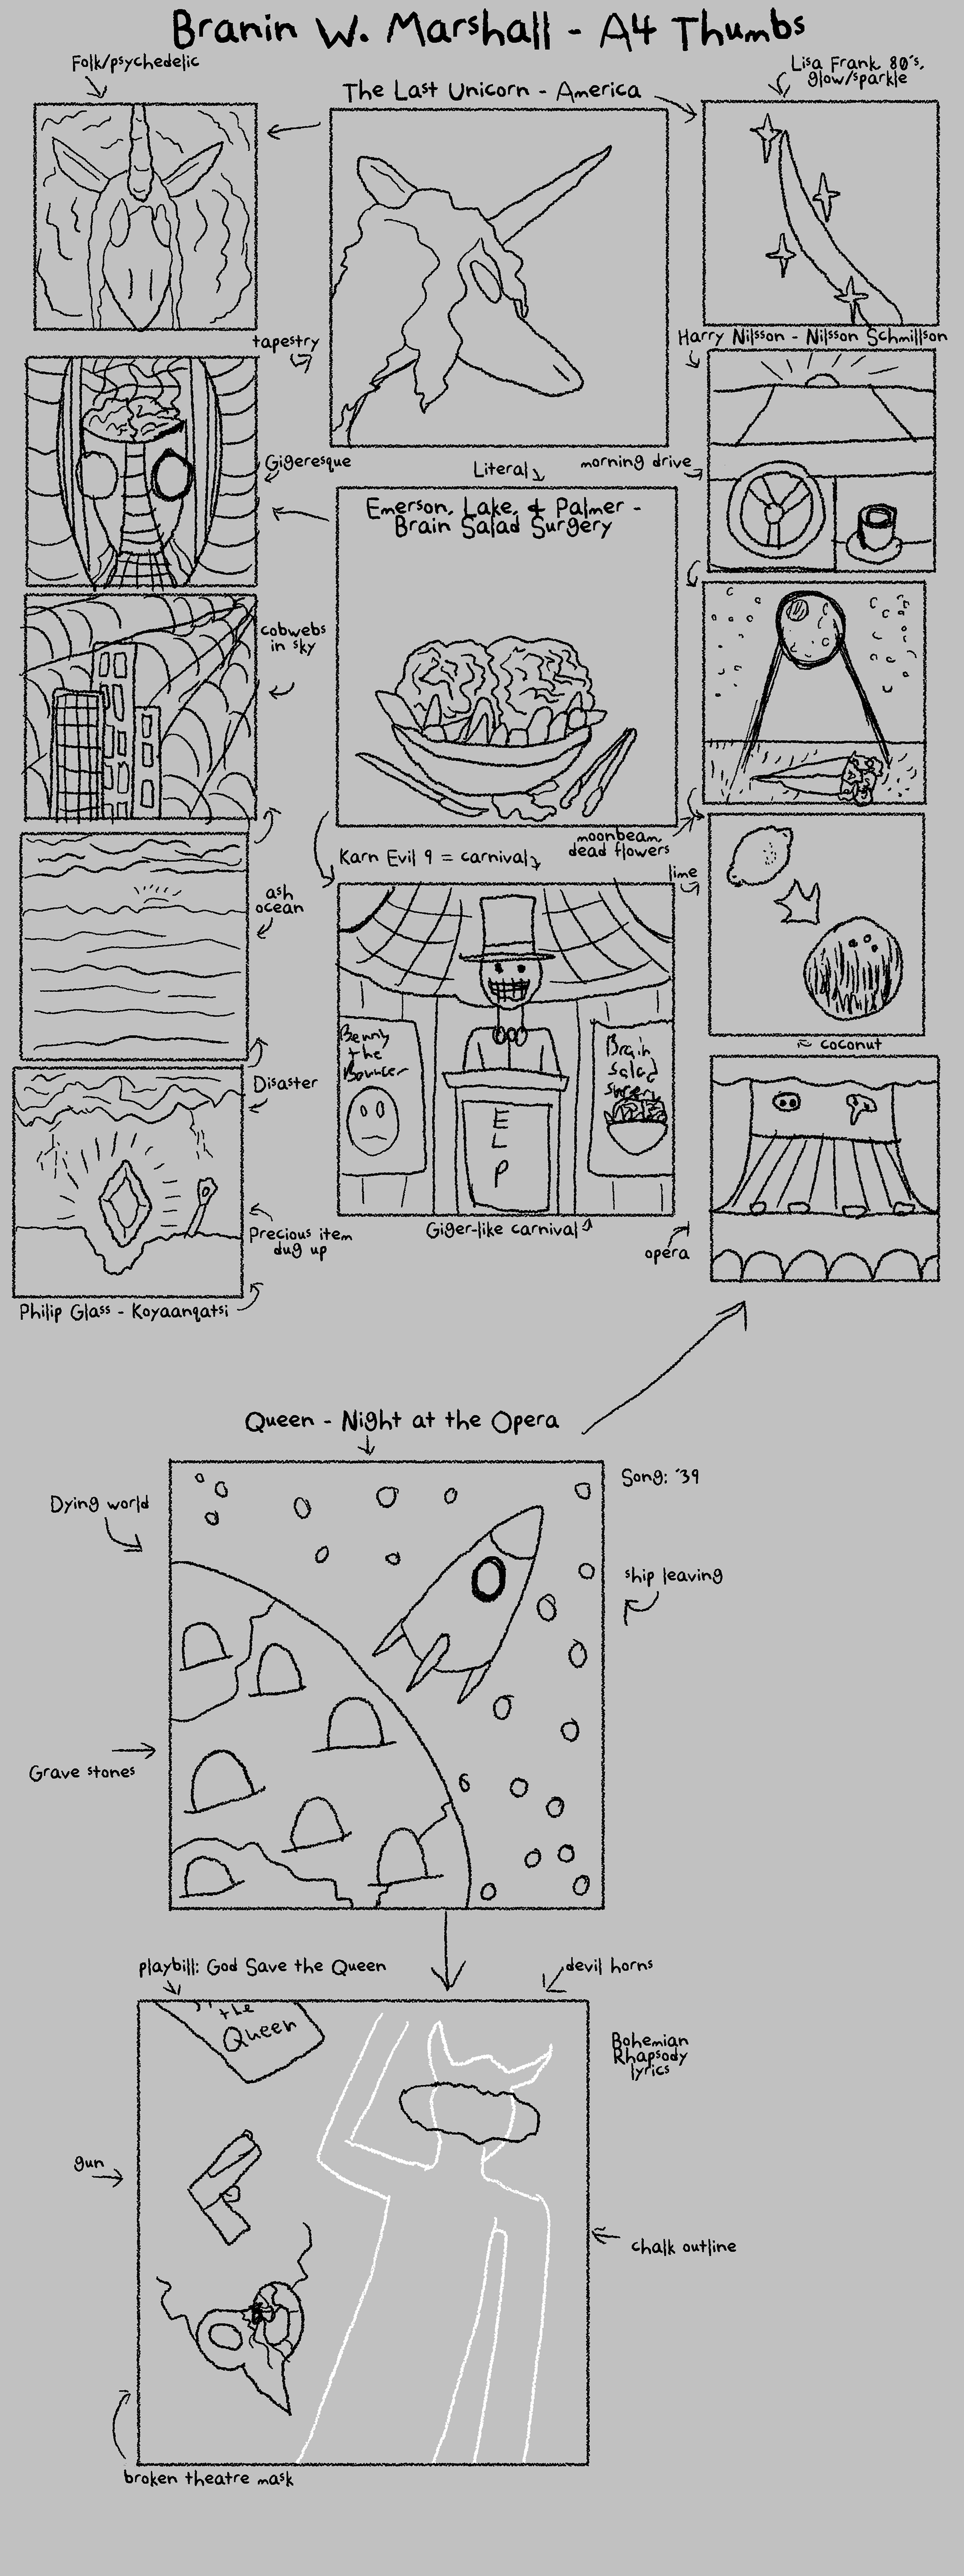 Branin W. Marshall - A4 Thumbs
Folk/psychedelic
The Last Unicorn - America
Lisa Frank 80's,
glow/sparkle
tapestry
Harry Nilsson - Nilsson Schmillson
Gigeresque
Literal
morning drive
Emerson, Lake, & Palmer -
Brain Salad Surgery
cobwebs
in sky
moonbeam,
dead flowers
Karn Evil 9 = carnival
lime
ash
ocean
Benny
the
Bouncer
Brain
Salad
Surgery
E
L
P
coconut
Disaster
Precious item
dug up
Giger-like carnival
opera
Philip Glass - Koyaanqatsi
Queen - Night at the Opera
Song: '39
Dying world
ship leaving
Grave stones
playbill: God Save the Queen
devil horns
the
Queen
Bohemian
Rhapsody
lyrics
gun
chalk outline
broken theatre mask